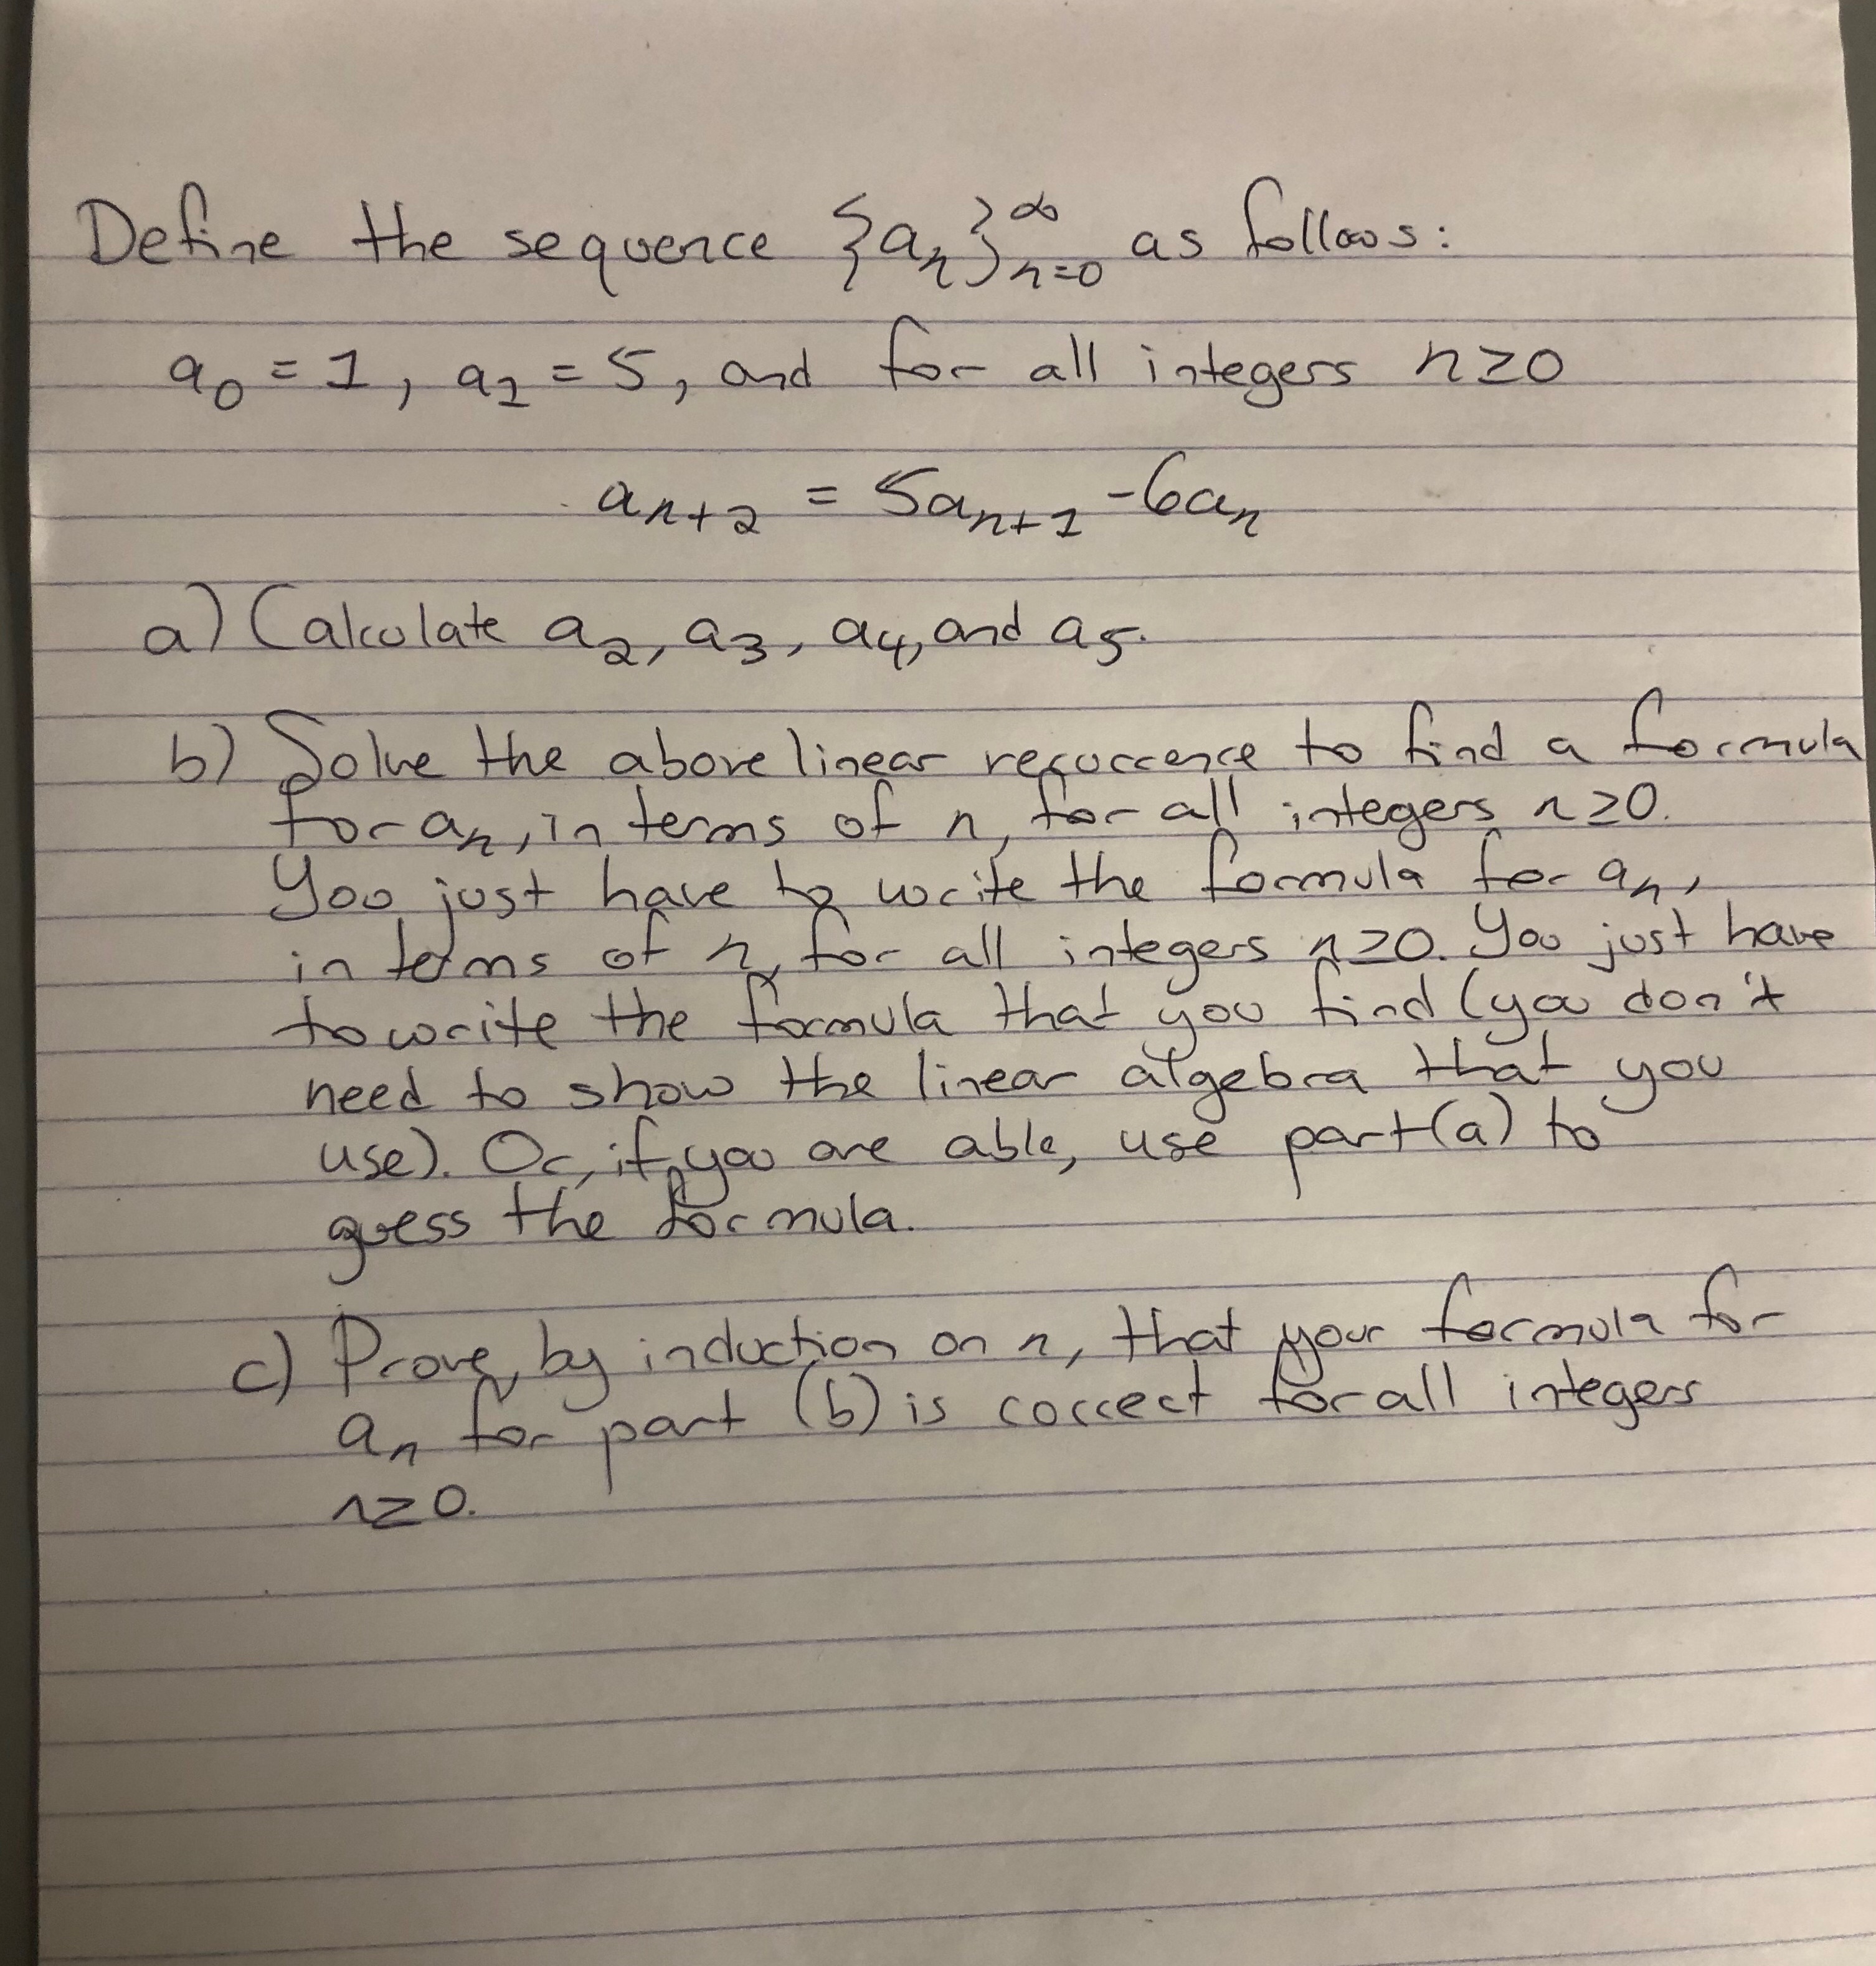 Define the sequence {aₙ}ₙ₌₀^∞ as follows:
a₀ = 1, a₁ = 5, and for all integers n≥0
aₙ₊₂ = 5aₙ₊₁ - 6aₙ
a) Calculate a₂, a₃, a₄, and a₅.
b) Solve the above linear recurrence to find a formula
for aₙ, in terms of n, for all integers n≥0.
You just have to write the formula for aₙ,
in terms of n, for all integers n≥0. You just have
to write the formula that you find (you don't
need to show the linear algebra that you
use). Or, if you are able, use part (a) to
guess the formula.
c) Prove, by induction on n, that your formula for
aₙ for part (b) is correct for all integers
n≥0.